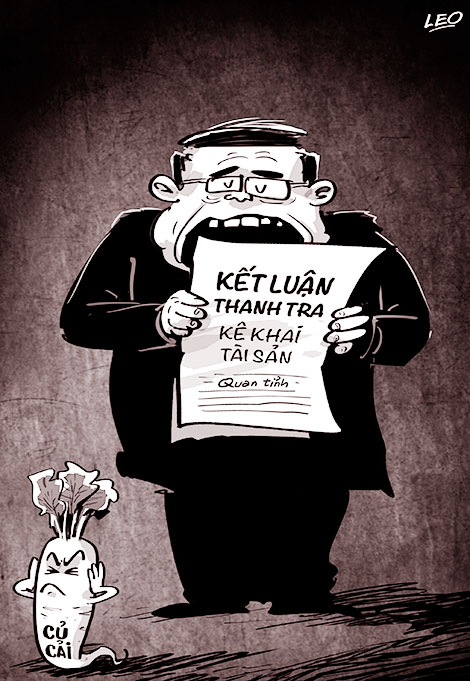 LEO
KẾT LUẬN
THANH TRA
KÊ KHAI
TÀI SẢN
Quan tỉnh
CỦ
CẢI